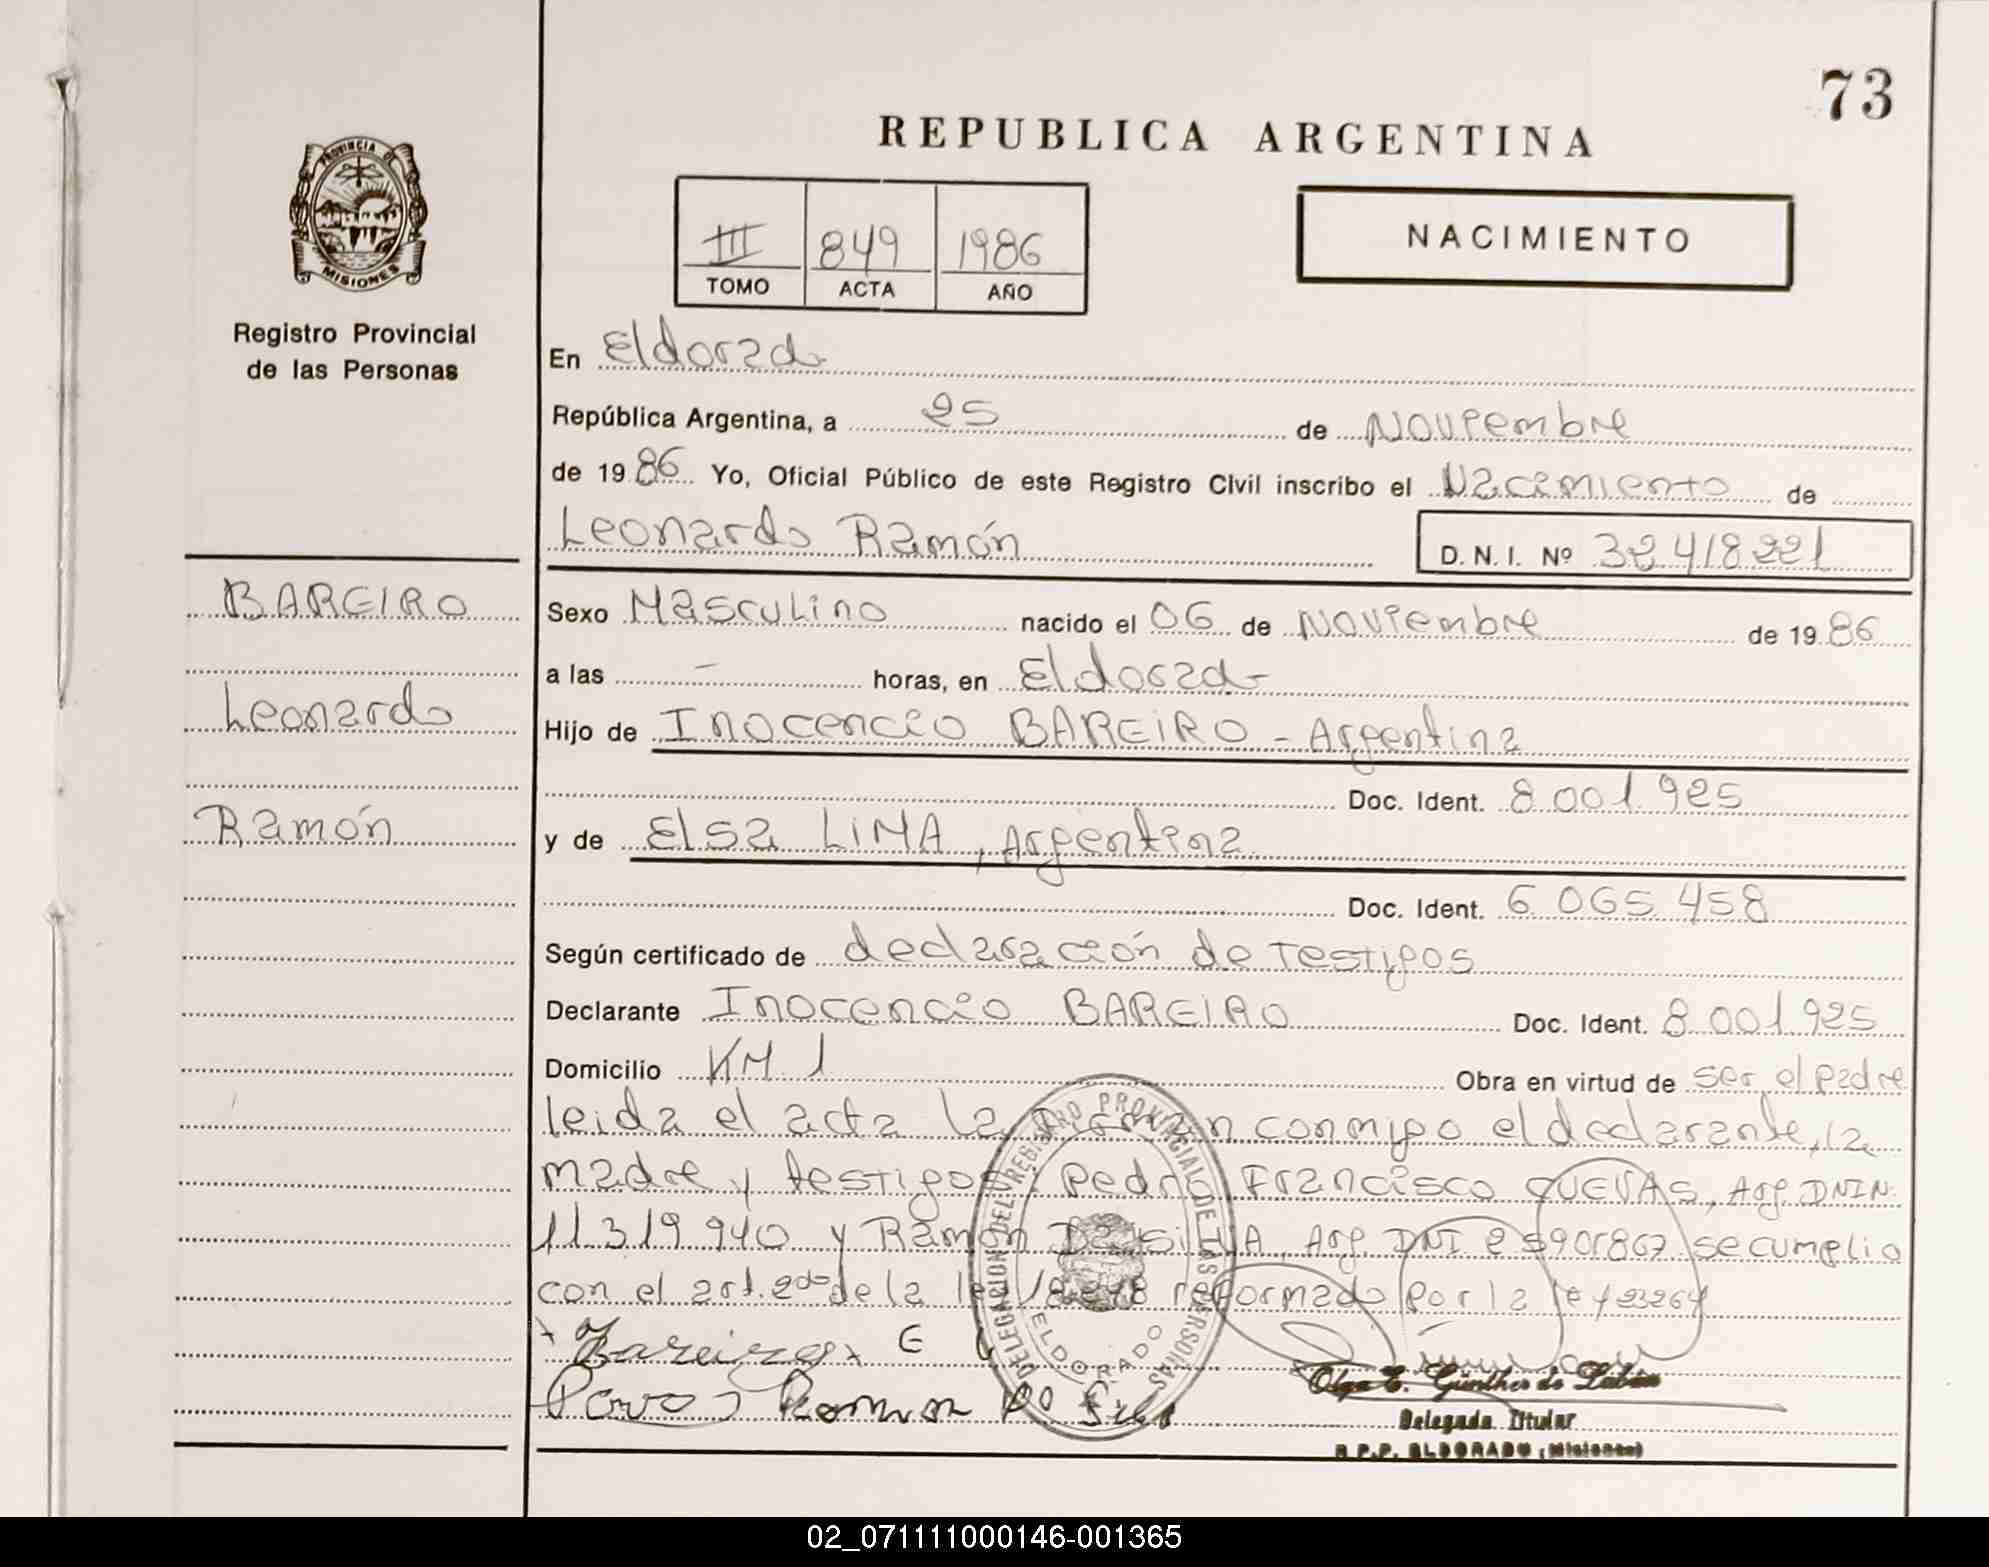 73
REPUBLICA ARGENTINA
PROVINCIA DE
MISIONES
III 849 1986
TOMO ACTA AÑO
NACIMIENTO
Registro Provincial
de las Personas
En Eldorado
República Argentina, a 25 de Noviembre
de 1986 Yo, Oficial Público de este Registro Civil inscribo el Nacimiento de
Leonardo Ramón D. N. I. Nº 32 418 221
BAREIRO
Leonardo
Ramón
Sexo Masculino nacido el 06 de Noviembre de 1986
a las – horas, en Eldorado
Hijo de Inocencio BAREIRO - Argentina
Doc. Ident. 8 001 925
y de Elsa LIMA, Argentina
Doc. Ident. 6 065 458
Según certificado de declaración de Testigos
Declarante Inocencio BAREIRO Doc. Ident. 8 001 925
Domicilio KM 1 Obra en virtud de ser el padre
leida el acta la conmigo el declarante, la
madre y testigos Pedro Francisco CUEVAS, Arg. DNI N
11 319 940 y Ramón Da SilVA, Arg. DNI se cumplio
con el art. 2do de la ley reformado por la ley 23264
Bareiro
Ramon Da Silva
DELEGACION DEL REGISTRO PROVINCIAL DE LAS PERSONAS
ELDORADO
Olga E. Günther de
Delegada Titular
R.P.P. ELDORADO (Misiones)
02_071111000146-001365